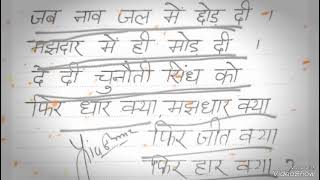 जब नाव जल में छोड़ दी ।
मझदार में ही मोड़ दी ।
दे दी चुनौती सिंध को
फिर धार क्या मझधार क्या
फिर जीत क्या
फिर हार क्या ?
VideoShow